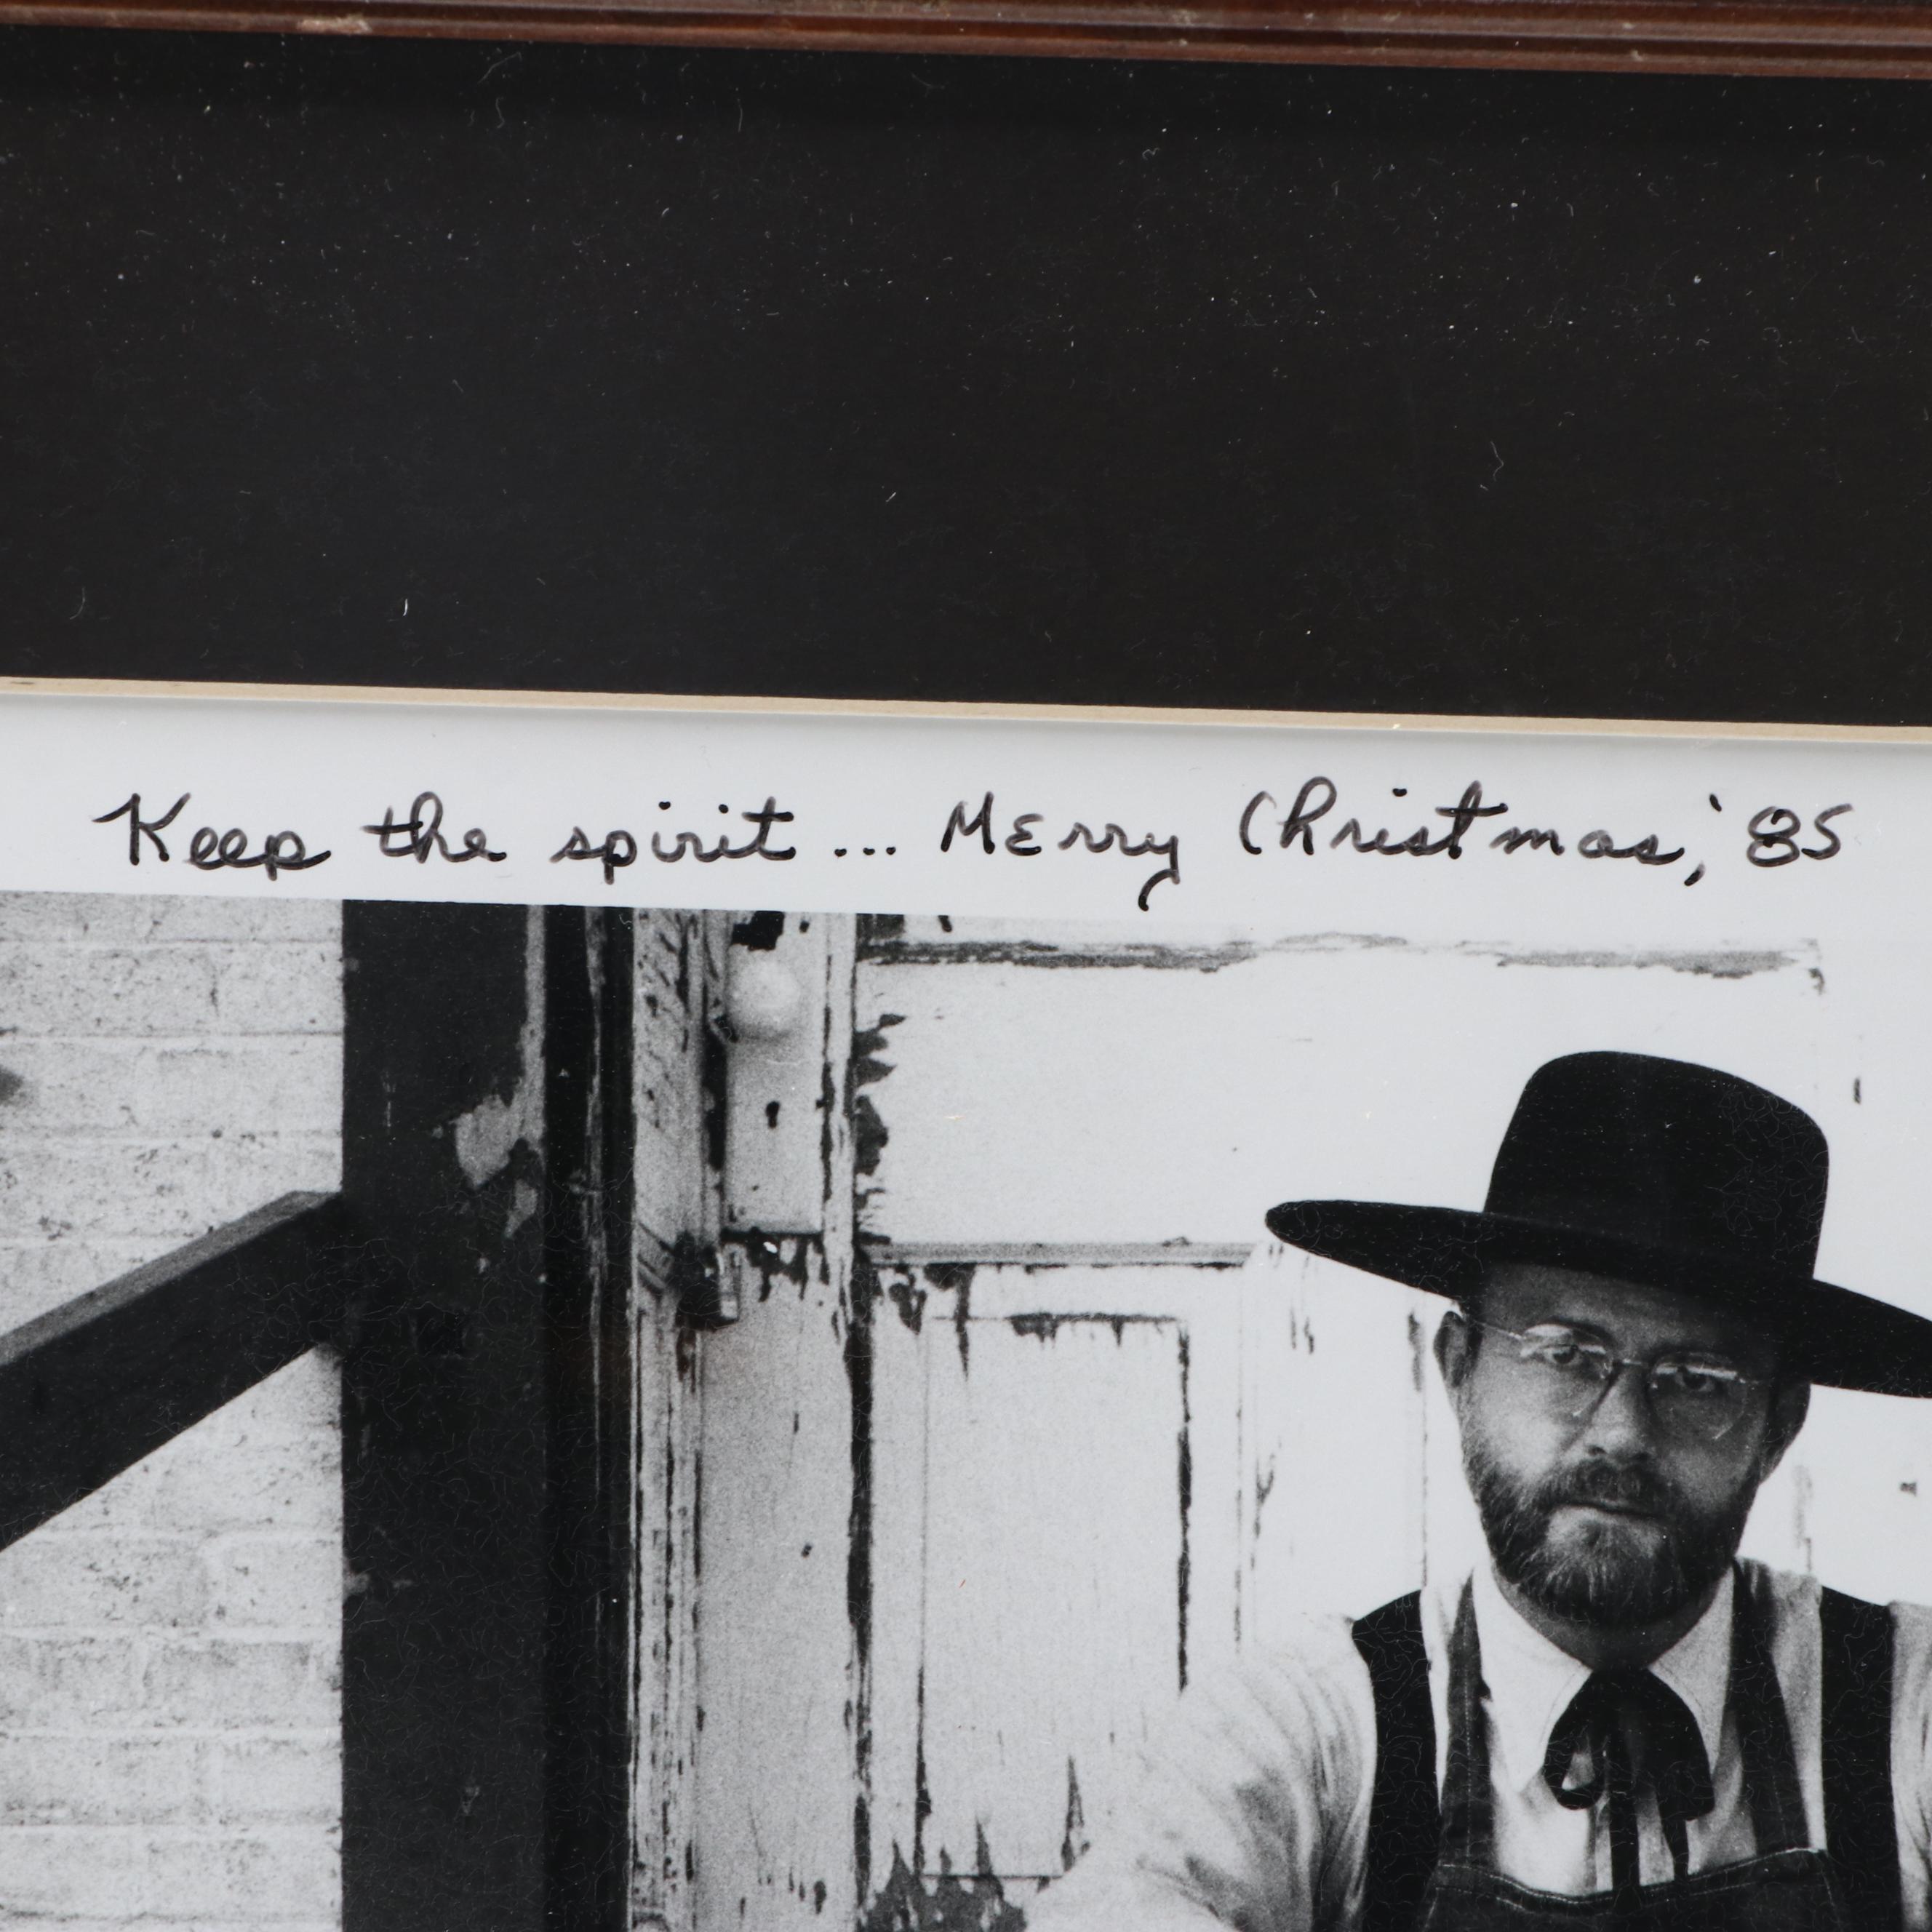 Keep the spirit... Merry Christmas, '85